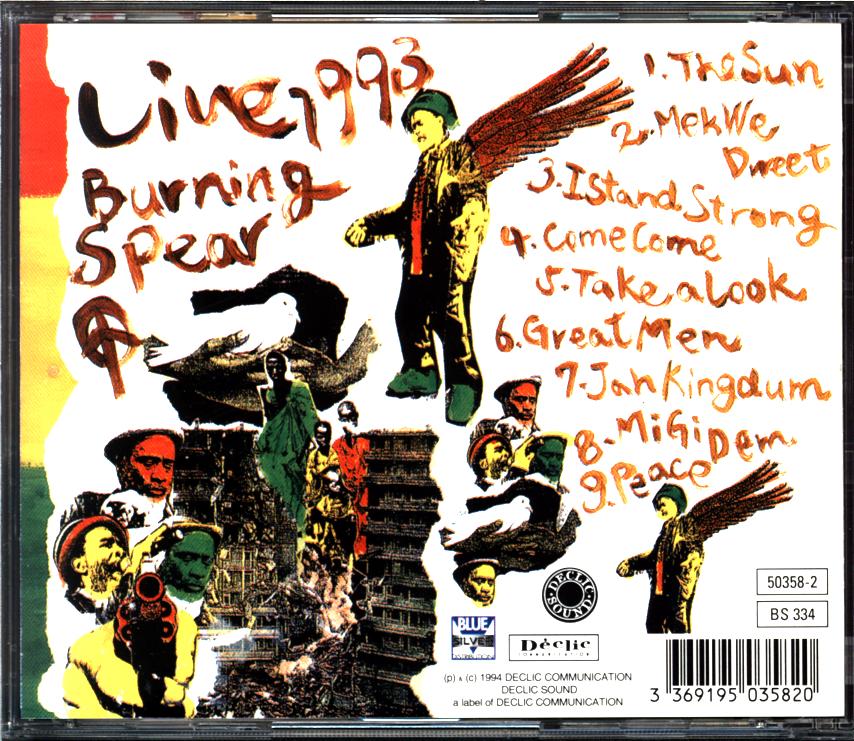 Live 1993
Burning
Spear
1. The Sun
2. Mek We
Dweet
3. I Stand Strong
4. Come Come
5. Take a Look
6. Great Men
7. Jah Kingdum
8. Mi Gi Dem
9. Peace
DECLIC SOUND
50358-2
BS 334
BLUE
SILVER
DISTRIBUTION
Déclic
COMMUNICATION
(p) & (c) 1994 DECLIC COMMUNICATION
DECLIC SOUND
a label of DECLIC COMMUNICATION
3 369195 035820